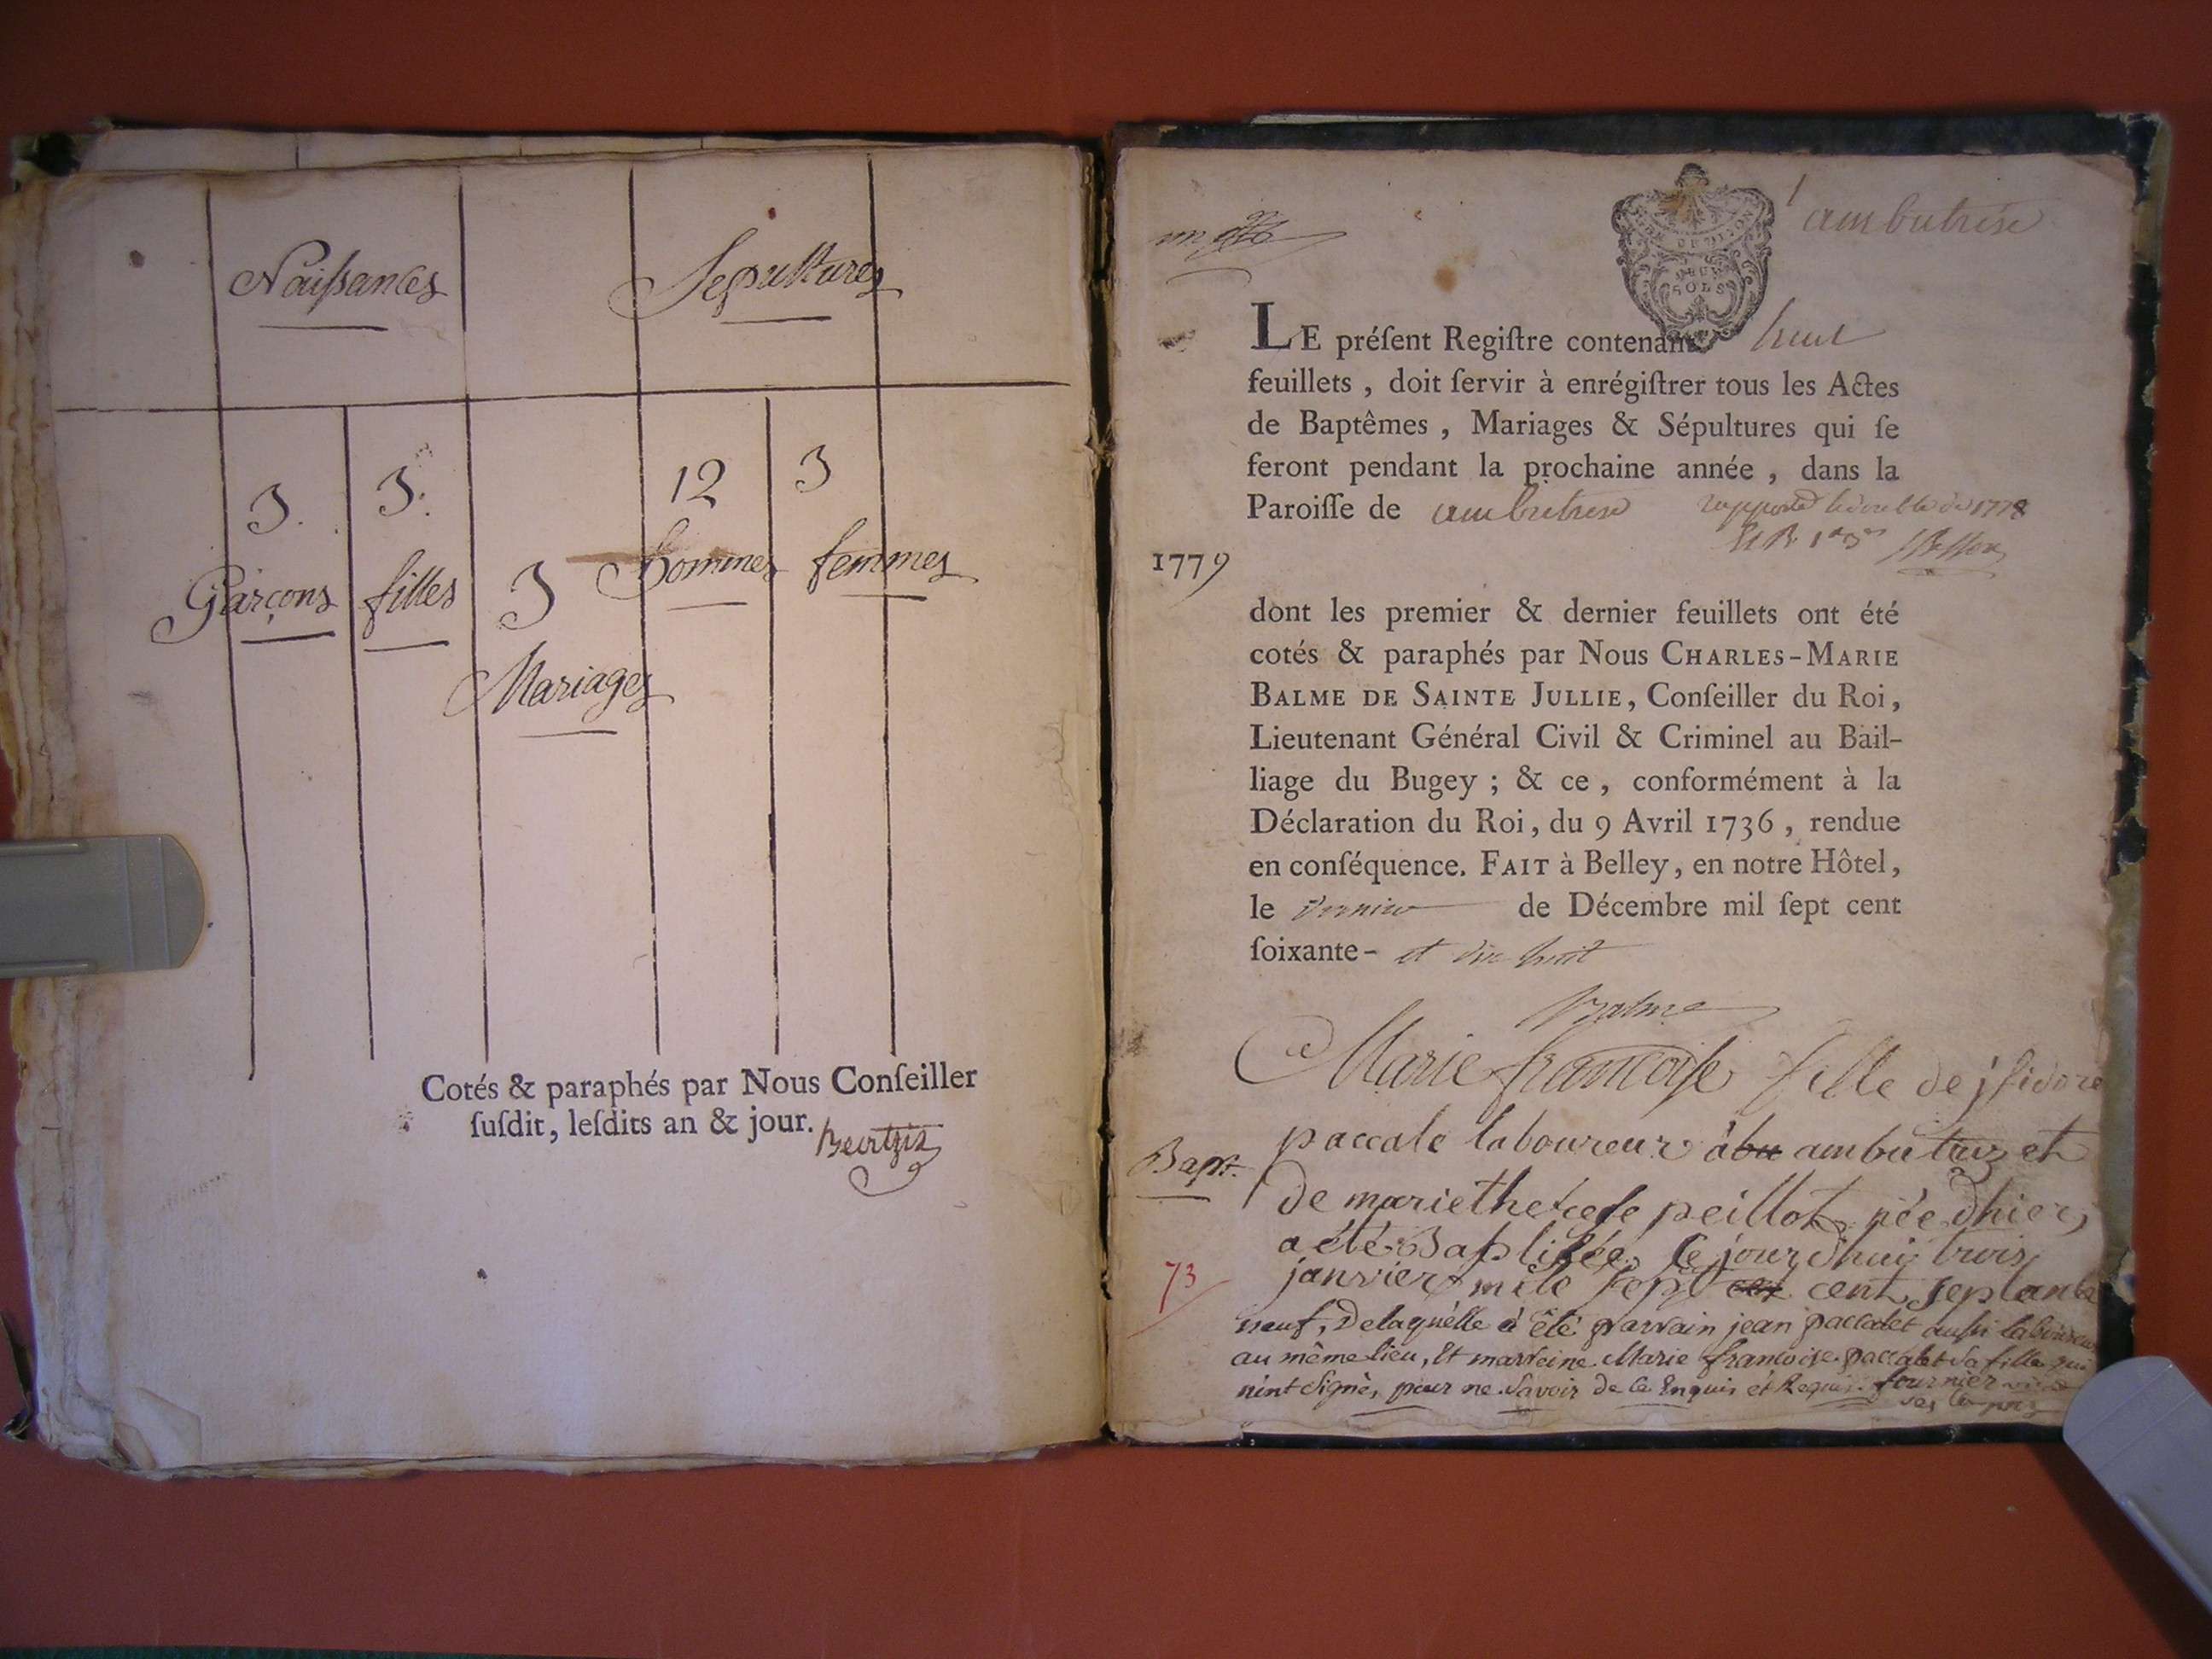 Naiſsances
Sepultures
3.
3.
12
3
Garçons
filles
3
hommes
femmes
Mariages
Cotés & paraphés par Nous Conſeiller
ſuſdit, leſdits an & jour.
un
GEN. DE DIJON
DEUX
SOLS
1
ambutrise
LE préſent Regiſtre contenant huit
feuillets , doit ſervir à enrégiſtrer tous les Actes
de Baptêmes , Mariages & Sépultures qui ſe
feront pendant la prochaine année , dans la
Paroiſſe de ambutrise rapporté le double de 1778
1779
dont les premier & dernier feuillets ont été
cotés & paraphés par Nous CHARLES-MARIE
BALME DE SAINTE JULLIE, Conſeiller du Roi,
Lieutenant Général Civil & Criminel au Bail-
liage du Bugey ; & ce , conformément à la
Déclaration du Roi, du 9 Avril 1736 , rendue
en conſéquence. FAIT à Belley, en notre Hôtel,
le dernier de Décembre mil ſept cent
ſoixante- et dix huit
Balme
Marie francoise fille de jsidore
paccale laboureur à ambutrix et
Bapt.
de marie therese peillot, née d'hier,
a été Baptisée, ce jourd'hui trois
73
janvier mile sept cent septante
neuf, de laquélle à êté parrain jean paccalet aussi laboureur
au même lieu, et marreine Marie francoise paccalet sa fille qui
n'int signé, pour ne savoir de ce Enquis ét Requis. fournier